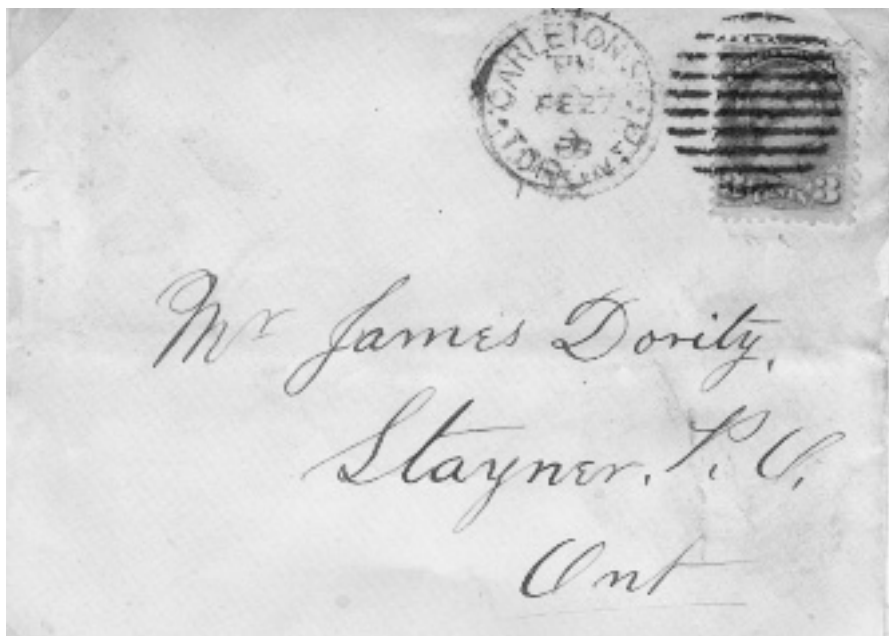 CARLETON ST.
PM
FE 27
TORONTO
3 CENTS 3
Mr James Dority,
Stayner, P. O,
Ont